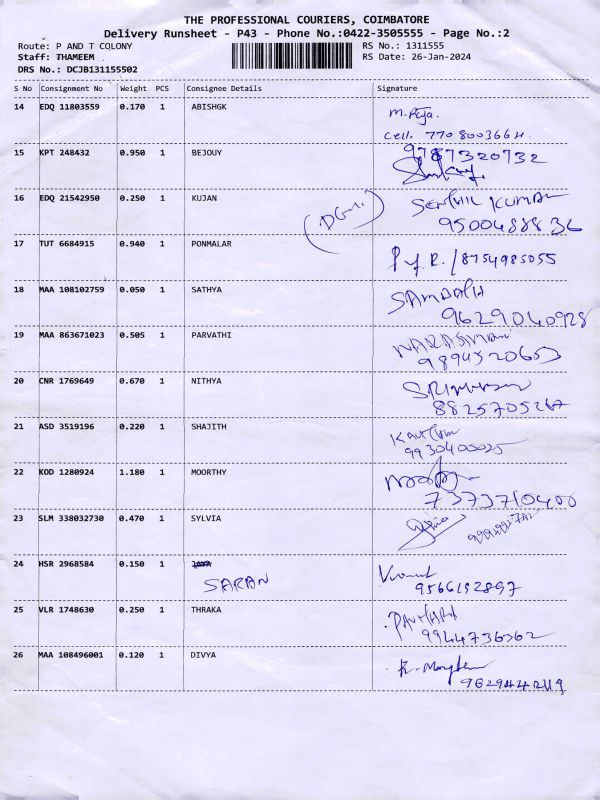 THE PROFESSIONAL COURIERS, COIMBATORE
Delivery Runsheet - P43 - Phone No.:0422-3505555 - Page No.:2
Route: P AND T COLONY RS No.: 1311555
Staff: THAMEEM RS Date: 26-Jan-2024
DRS No.: DCJB131155502
S No Consignment No Weight PCS Consignee Details Signature
14 EDQ 11803559 0.170 1 ABISHGK M. Raja.
Cell. 7708003664.
15 KPT 248432 0.950 1 BEJOUY 9787320732
16 EDQ 21542950 0.250 1 KUJAN SENTHIL KUMAR
9500488836
17 TUT 6684915 0.940 1 PONMALAR /8754985055
18 MAA 108102759 0.050 1 SATHYA SAMBATH
9629040928
19 MAA 863671023 0.505 1 PARVATHI NARASIMAN
9894520653
20 CNR 1769649 0.670 1 NITHYA
8825705267
21 ASD 3519196 0.220 1 SHAJITH
9930400025
22 KOD 1280924 1.180 1 MOORTHY
7373710400
23 SLM 338032730 0.470 1 SYLVIA
24 HSR 2968584 0.150 1
SARAN
9566192897
25 VLR 1748630 0.250 1 THRAKA
9944736362
26 MAA 108496001 0.120 1 DIVYA